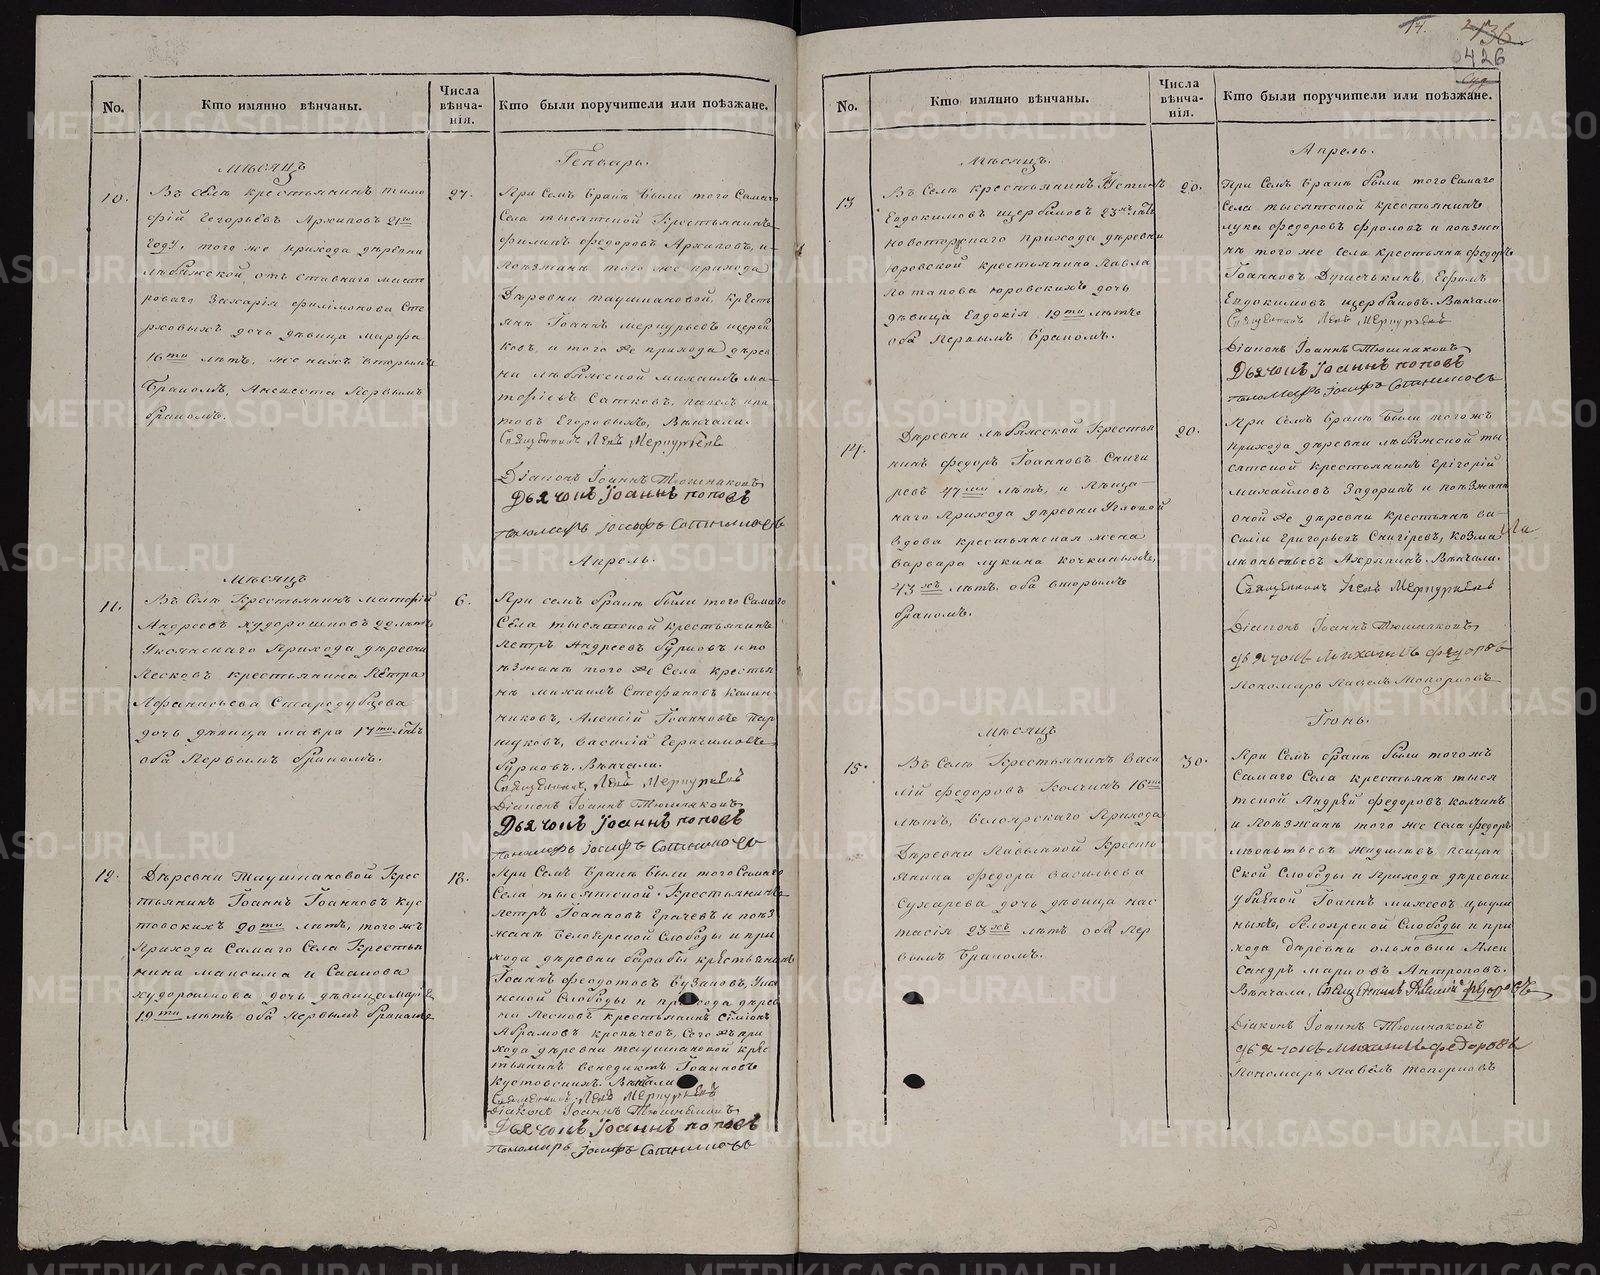 No.
Кто имянно вѣнчаны.
Числа
вѣнча-
нія.
Кто были поручители или поѣзжане.
Мѣсяцъ
Генварь.
10.
Въ Селѣ крестьянинъ тимо
фій Егорьевъ Архиповъ 21го
году, того же прихода деревни
любяжской, отъ ставнаго масте
роваго Захарія филімонова Сте
рховыхъ дочь дѣвица марфа
16ти лѣтъ, женихъ вторымъ
бракомъ, Аневеста первымъ
бракомъ.
27.
При Семъ бракѣ были того Самаго
Села тысятской Крестьянинъ
филипъ федоровъ Архиповъ, и
поезжана того же прихода
Деревни таушкановой, кресть
янъ Іоаннъ меркурьевъ щерба
ковъ, и того же прихода дерев
ни любяжской михаилъ ма
тфіевъ Сатковъ, павелъ ипа
товъ Егоровыхъ, Вѣнчали.
Священникъ Левъ Меркурьевъ
Діаконъ Іоаннъ Тюшняковъ
Дьячокъ Іоаннъ поповъ
пономарь іосифъ Сотниковъ
Мѣсяцъ
Апрель.
11.
Въ Селѣ Крестьянинъ матфій
Андреевъ худорошковъ 22 лѣтъ
Уксянскаго Прихода деревни
Песковъ крестьянина Петра
Афанасьева Стародубцева
дочь дѣвица мавра 17ти лѣтъ
оба Первымъ бракомъ.
6.
При семъ бракѣ были того Самаго
Села тысятской крестьянинъ
Петръ Андреевъ бурковъ и по
ѣзжанъ того же Села кресть
нъ михаилъ Стефановъ калин
никовъ, Алексій Іоанновъ пар
шуковъ, василій Герасимовъ
бурковъ. Вѣнчали.
Священникъ Левъ Меркурьевъ
Діаконъ Іоаннъ Тюшняковъ
Дьячокъ Іоаннъ поповъ
пономарь іосифъ Сотниковъ
12.
Деревни Таушкановой Крес
тьянинъ Іоаннъ Іоанновъ кус
товскихъ 20ти лѣтъ, того жъ
Прихода Самаго Села Крестья
нина максима и Саакова
худорошкова дочь дѣвица марія
19ти лѣтъ оба первымъ бракомъ
18.
При Семъ бракѣ были того Самаго
Села тысятской Крестьянинъ
Петръ Іоанновъ Грачевъ и поѣз
жанъ белоярской Слободы и при
хода деревни барабы крестьянинъ
Іоаннъ федотовъ бузановъ, Укс
янской Слободы и прихода дерев
ни Песковъ крестьянинъ Симіонъ
Абрамовъ кропачевъ, Сего жъ при
хода деревни таушкановой крес
тьянинъ венедиктъ Іоанновъ
кустовскихъ. Вѣнчали
Священникъ Левъ Меркурьевъ
Діаконъ Іоаннъ Тюшняковъ
Дьячокъ Іоаннъ поповъ
пономарь іосифъ Сотниковъ
14.
426
No.
Кто имянно вѣнчаны.
Числа
вѣнча-
нія.
Кто были поручители или поѣзжане.
Мѣсяцъ.
Апрель.
13
Въ Селѣ крестьянинъ Устинъ
Евдокимовъ щербаковъ 23хъ лѣтъ
новоторжнаго прихода деревни
юровской крестьянина Павла
Потапова юровскихъ дочь
дѣвица Евдокія 19ти лѣтъ
оба Первымъ бракомъ.
20.
При Семъ бракѣ были того Самаго
Села тысятской крестьянинъ
лука федоровъ фроловъ и поѣзжа
нъ того же села крестьянъ федоръ
Іоанновъ Дучечькинъ, Ефимъ
Евдокимовъ щербаковъ. Вѣнчали
Священникъ Левъ Меркурьевъ
Діаконъ Іоаннъ Тюшняковъ
Дьячокъ Іоаннъ поповъ
пономарь іосифъ Сотниковъ
14.
Деревни любяжской Крестья
нинъ федоръ Іоанновъ Снигі
ревъ 47ми лѣтъ, и Пеща-
наго Прихода деревни Угловой
вдова крестьянская жена
варвара лукина кочкиныхъ,
43хъ лѣтъ, оба вторымъ
бракомъ.
20.
При Семъ бракѣ были тогожъ
прихода деревни любяжской ты
сятской крестьянинъ Григорій
михайловъ Задоринъ и поѣзжана
оной же деревни крестьянъ ва
силій Григорьевъ Снигіревъ, козма
леоньтьевъ Ахряпинъ. Вѣнчали.
Священникъ Левъ Меркурьевъ
Діаконъ Іоаннъ Тюшняковъ
дьячокъ Михаилъ федоровъ
Пономарь Павелъ Топорковъ
Мѣсяцъ
Іюнь.
15.
Въ Селѣ Крестьянинъ васи
лій федоровъ Колчинъ 16ти
лѣтъ, белоярскаго Прихода
Деревни Павылиной Кресть
янина федора васильева
Сухарева дочь дѣвица нас
тасія 23хъ лѣтъ оба пер
вымъ бракомъ.
30.
При Семъ бракѣ были тогожъ
Самаго Села крестьянъ тыся
тской Андрей федоровъ колчинъ
и поѣзжанъ того же села федоръ
леонтьевъ жидилевъ, песчан
ской Слободы и Прихода деревни
убиеной Іоаннъ михеевъ цыкули
ныхъ, белоярской Слободы и при
хода деревни ольховки Алек
сандръ марковъ Антроповъ.
Вѣнчали, Священникъ Алексій федоровъ
Діаконъ Іоаннъ Тюшняковъ
дьячокъ михаилъ федоровъ
Пономарь павелъ топорковъ
METRIKI.GASO-URAL.RU